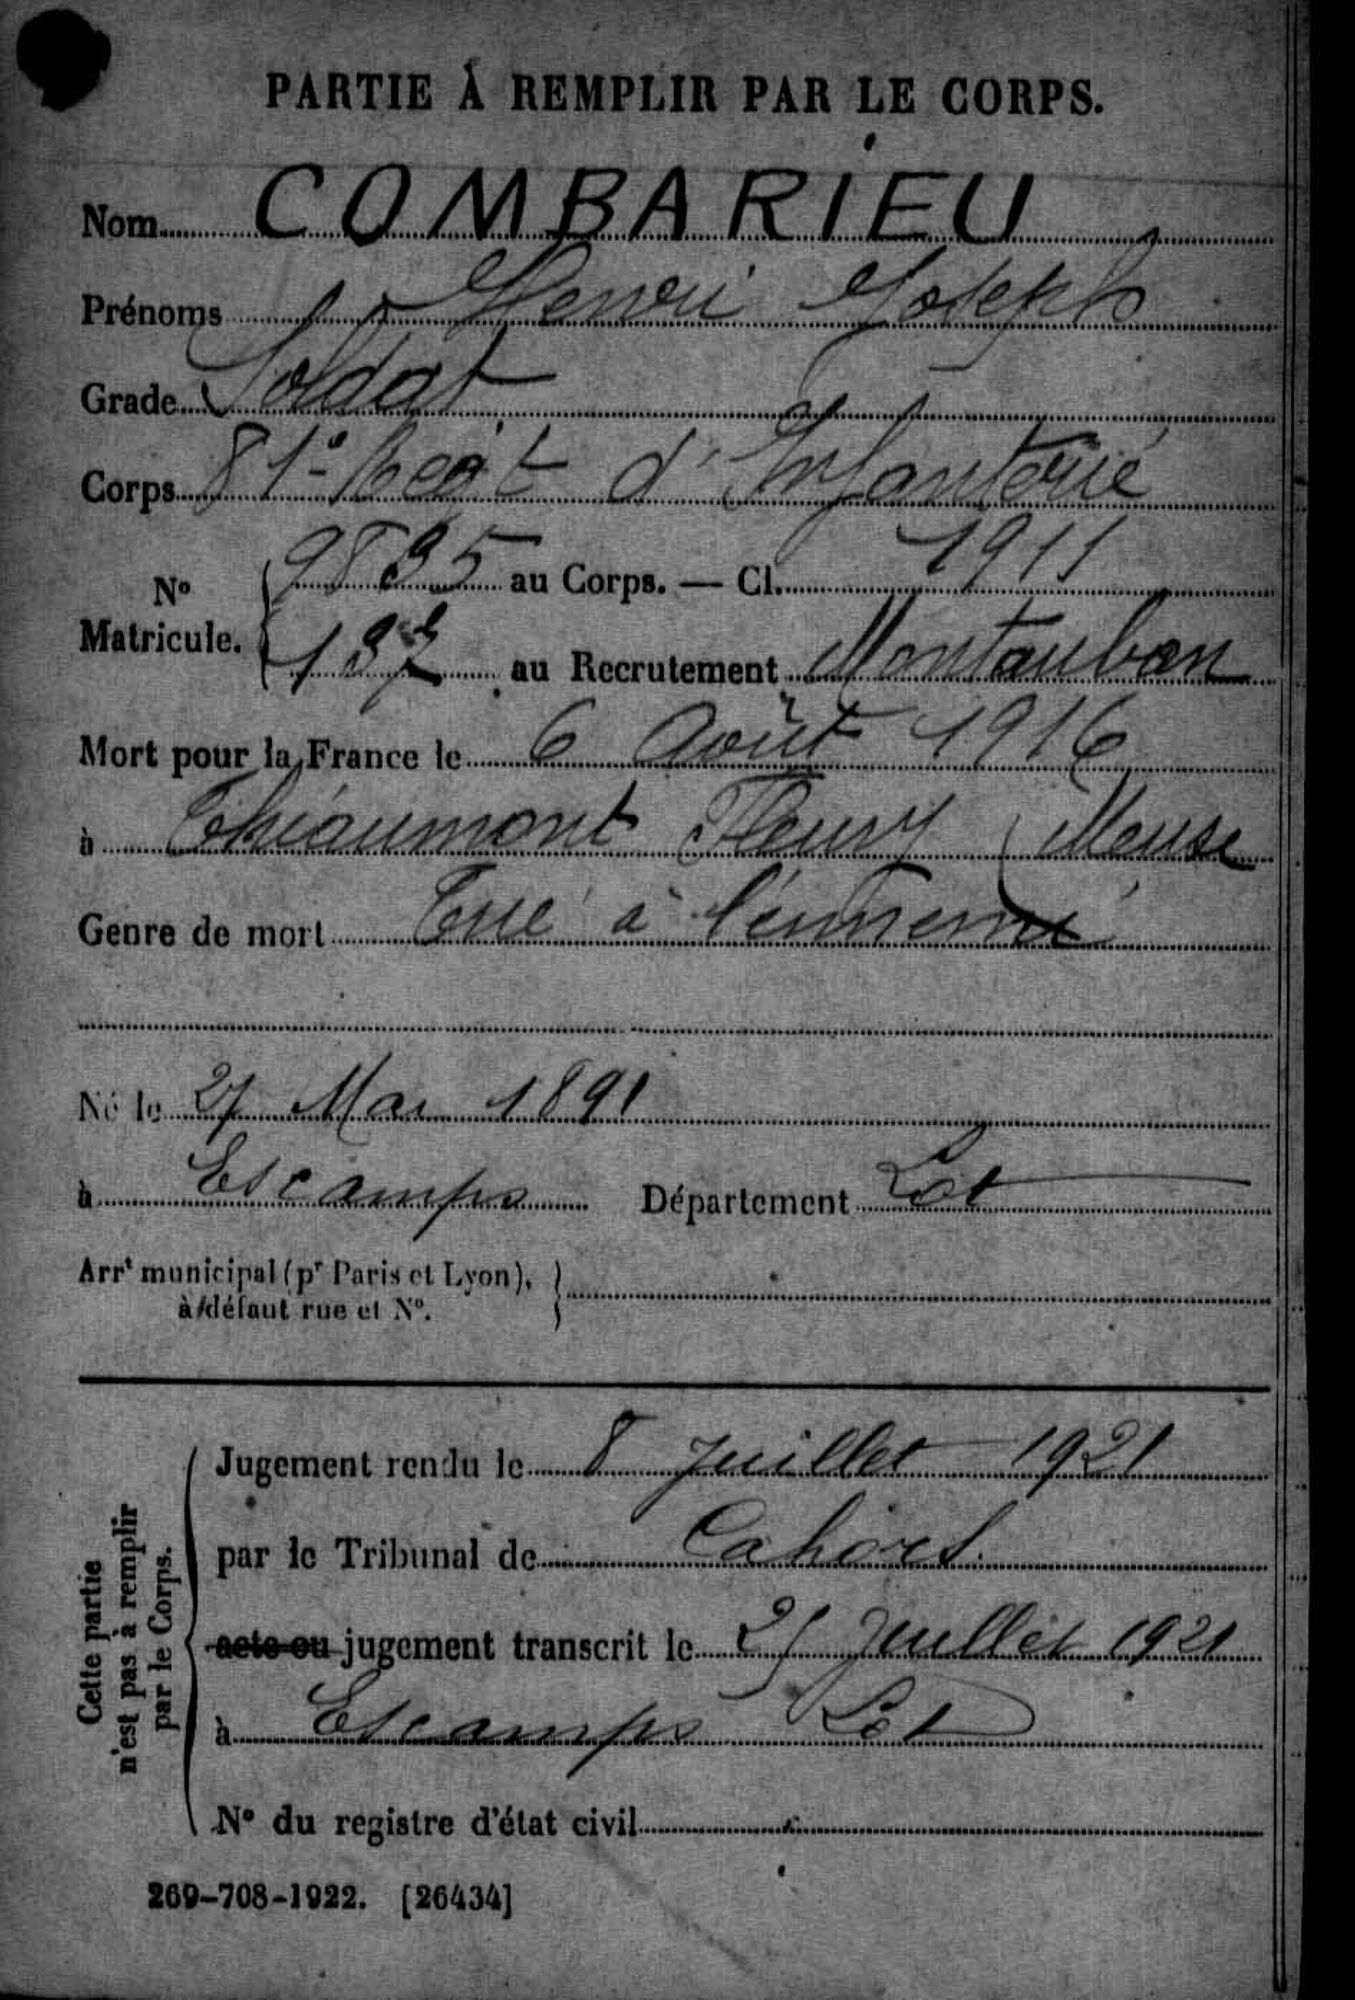 PARTIE À REMPLIR PAR LE CORPS.
Nom COMBARIEU
Prénoms Henri Joseph
Grade Soldat
Corps 81e Regt d'Infanterie
No
Matricule.
9835 au Corps. — Cl. 1911
137 au Recrutement Montauban
Mort pour la France le 6 Août 1916
à Thiaumont Fleury (Meuse
Genre de mort Tué à l'ennemi
Né le 27 Mai 1891
à Escamps Département Lot
Arrt municipal (pr Paris et Lyon),
à défaut rue et No.
Cette partie
n'est pas à remplir
par le Corps.
Jugement rendu le 8 Juillet 1921
par le Tribunal de Cahors.
acte ou jugement transcrit le 25 Juillet 1921
à Escamps Lot
No du registre d'état civil
269-708-1922. [26434]